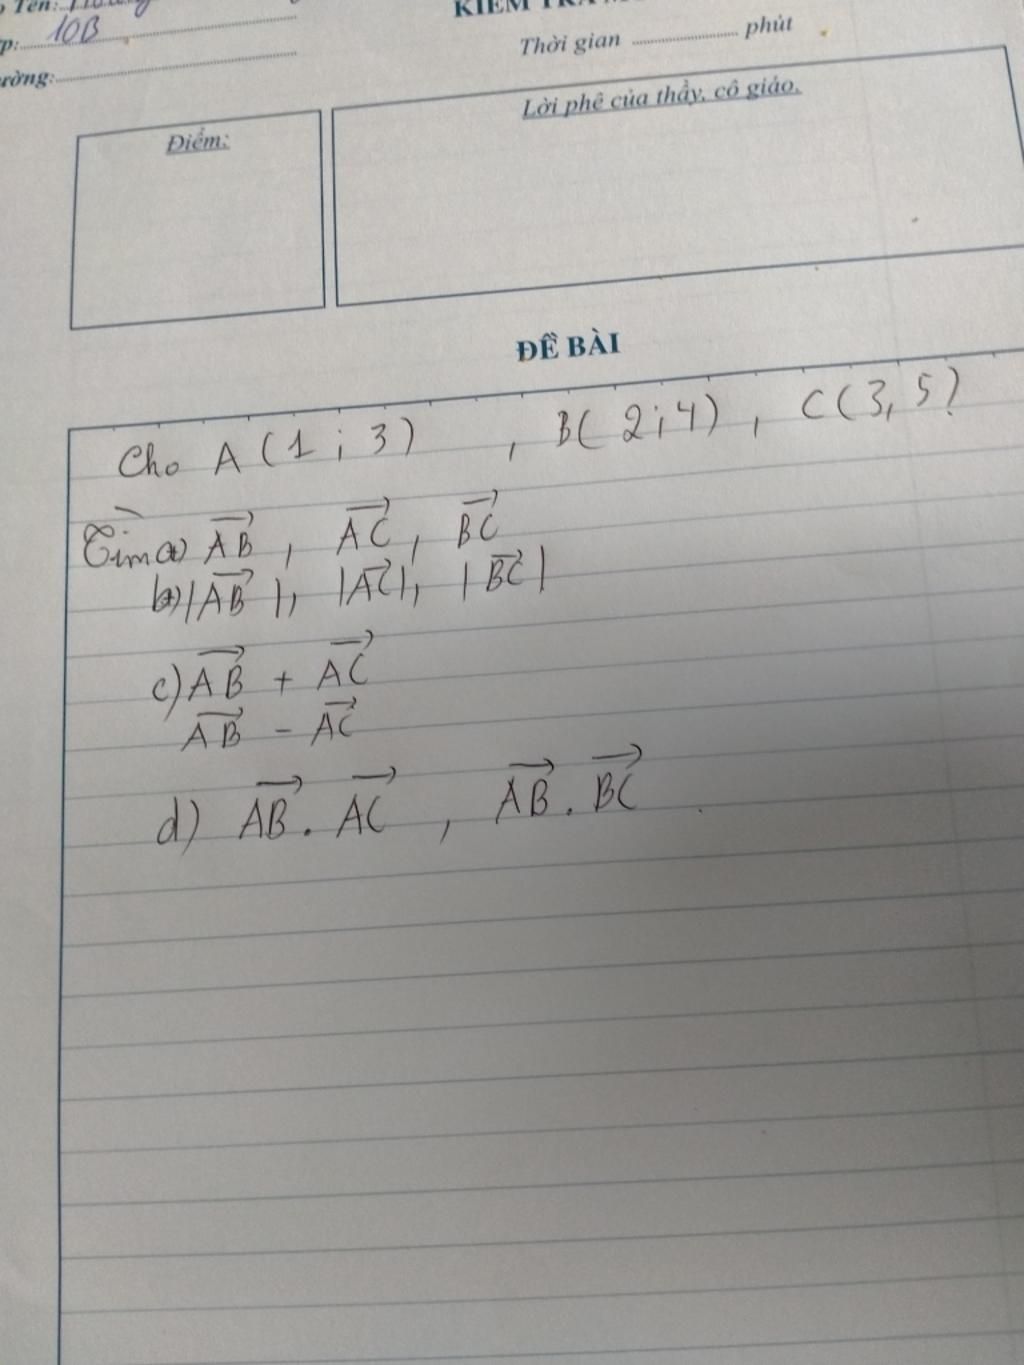 Tên:
KIỂM TRA
p: 10B
Thời gian ........................ phút
ường:
Điểm:
Lời phê của thầy, cô giáo.
ĐỀ BÀI
Cho A (1; 3) , B( 2;4) , C(3,5)
Tìm a) AB→, AC→, BC→
b) |AB→|, |AC→|, |BC→|
c) AB→ + AC→
AB→ - AC→
d) AB→ . AC→ , AB→ . BC→